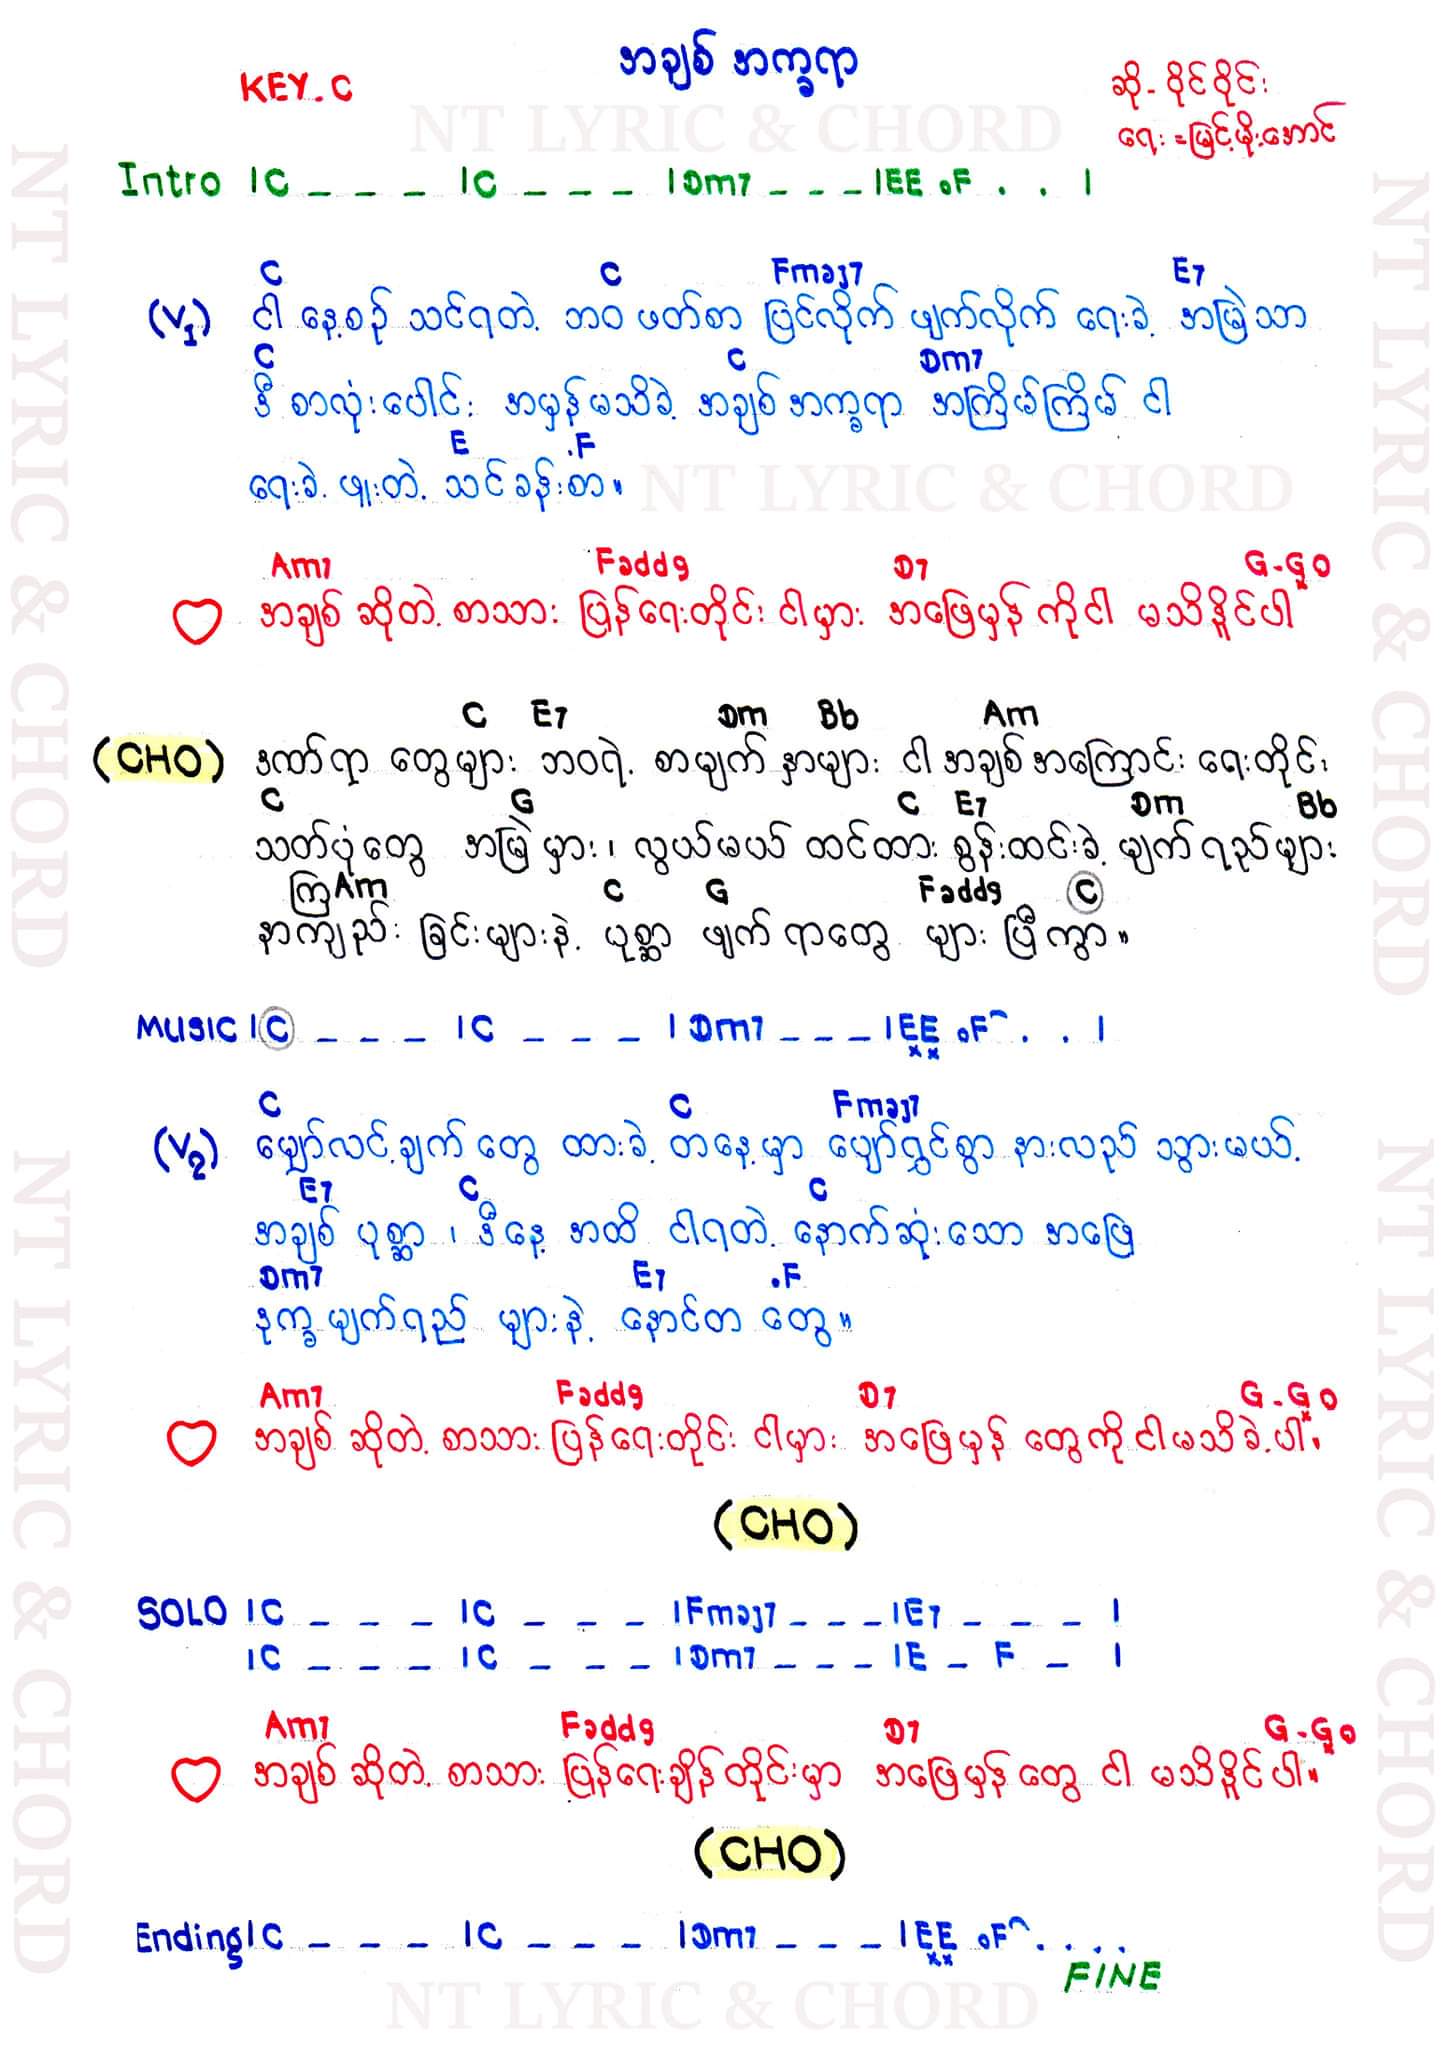 အချစ် အက္ခရာ
KEY.C
ဆို - ဝိုင်ဝိုင်း
ရေး = မြင့်မိုးအောင်
NT LYRIC & CHORD
Intro |C _ _ _ |C _ _ _ |Dm7 _ _ _ |EE .F . . |
C C Fmaj7 E7
(V1) ငါ နေ့စဉ် သင်ရတဲ့ ဘဝ ဖတ်စာ ပြင်လိုက် ဖျက်လိုက် ရေးခဲ့ အမြဲသာ
C C Dm7
ဒီ စာလုံးပေါင်း အမှန်မသိခဲ့ အချစ်အက္ခရာ အကြိမ်ကြိမ် ငါ
E .F
ရေးခဲ့ ဖူးတဲ့ သင်ခန်းစာ။
NT LYRIC & CHORD
Am7 Fadd9 D7 G-G0
အချစ် ဆိုတဲ့ စာသား ပြန်ရေးတိုင်း ငါမှား အဖြေမှန် ကိုငါ မသိနိူင်ပါ
C E7 Dm Bb Am
(CHO) ဒဏ်ရာ တွေများ ဘဝရဲ့ စာမျက်နှာများ ငါ အချစ်အကြောင်း ရေးတိုင်း
C G C E7 Dm Bb
သတ်ပုံတွေ အမြဲမှား၊ လွယ်မယ် ထင်ထား စွန်းထင်းခဲ့ မျက်ရည်များ
ကြ Am C G Fadd9 C
နာကျည်း ခြင်းများနဲ့ ပုစ္ဆာ ဖျက် ရာတွေ များ ပြီကွာ။
MUSIC |C _ _ _ |C _ _ _ |Dm7 _ _ _ |EE .F . . |
C C Fmaj7
(V2) မျှော်လင့်ချက် တွေ ထားခဲ့ တနေ့မှာ ပျော်ရွှင်စွာ နားလည် သွားမယ့်
E7 C C
အချစ် ပုစ္ဆာ ၊ ဒီနေ့ အထိ ငါရတဲ့ နောက်ဆုံးသော အဖြေ
Dm7 E7 .F
ဒုက္ခ မျက်ရည် များနဲ့ နောင်တ တွေ။
Am7 Fadd9 D7 G-G0
အချစ် ဆိုတဲ့ စာသား ပြန်ရေးတိုင်း ငါမှား အဖြေမှန် တွေကို ငါမသိခဲ့ပါ၊
(CHO)
SOLO |C _ _ _ |C _ _ _ |Fmaj7 _ _ _ |E7 _ _ _ |
|C _ _ _ |C _ _ _ |Dm7 _ _ _ |E _ F _ |
Am7 Fadd9 D7 G-G0
အချစ် ဆိုတဲ့ စာသား ပြန်ရေးချိန်တိုင်းမှာ အဖြေမှန်တွေ ငါ မသိနိူင်ပါ။
(CHO)
Ending |C _ _ _ |C _ _ _ |Dm7 _ _ _ |EE .F . . . .
FINE
NT LYRIC & CHORD
NT LYRIC & CHORD
NT LYRIC & CHORD
NT LYRIC & CHORD
NT LYRIC & CHORD